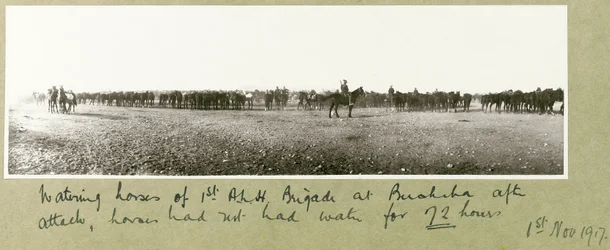 Watering horses of 1st A.L.H. Brigade at Beersheba after
attack, horses had not had water for 72 hours
1st Nov 1917.